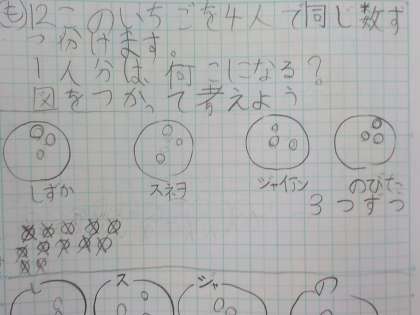 も 12このいちごを4人で同じ数ず
つ分けます。
1人分は、何こになる?
図をつかって考えよう
しずか スネヲ ジャイアン のびた
3つずつ
し ス ジャ の